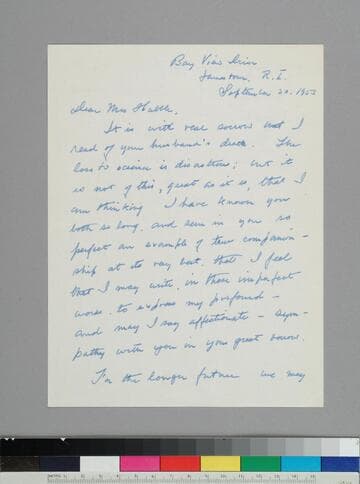 Bay View Drive
Jamestown, R.I.
September 30, 1953
Dear Mrs Hubble,
It is with real sorrow that I
read of your husband's death. The
loss to science is disastrous; but it
is not of this, great as it is, that I
am thinking. I have known you
both so long, and seen in you so
perfect an example of true companion-
ship at its very best, that I feel
that I may write, in these imperfect
words, to express my profound –
and may I say affectionate – sym-
pathy with you in your great sorrow.
For the longer future we may